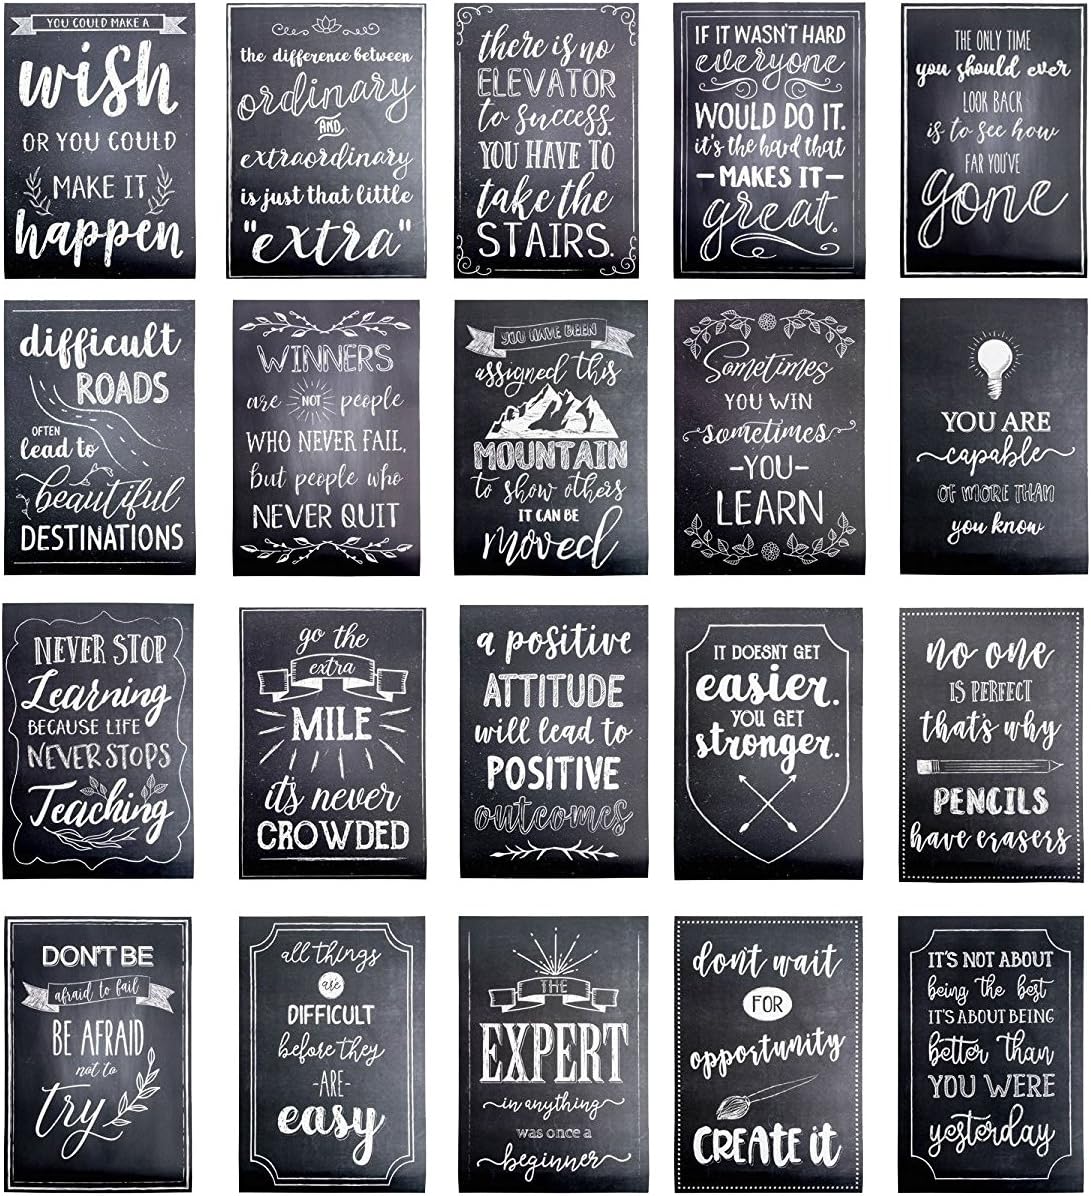 YOU COULD MAKE A
wish
OR YOU COULD
MAKE IT
happen
the difference between
ordinary
AND
extraordinary
is just that little
"extra"
there is no
ELEVATOR
to success.
YOU HAVE TO
take the
STAIRS.
IF IT WASN'T HARD
everyone
WOULD DO IT.
it's the hard that
- MAKES IT -
great.
THE ONLY TIME
you should ever
LOOK BACK
is to see how
FAR YOU'VE
gone
difficult
ROADS
OFTEN
lead to
beautiful
DESTINATIONS
WINNERS
are NOT people
WHO NEVER FAIL,
but people who
NEVER QUIT
YOU HAVE BEEN
assigned this
MOUNTAIN
to show others
IT CAN BE
moved
Sometimes
YOU WIN
sometimes
- YOU -
LEARN
YOU ARE
capable
OF MORE THAN
you know
NEVER STOP
Learning
BECAUSE LIFE
NEVER STOPS
Teaching
go the
extra
MILE
it's never
CROWDED
a positive
ATTITUDE
will lead to
POSITIVE
outcomes
IT DOESN'T GET
easier.
YOU GET
stronger.
no one
IS PERFECT
that's why
PENCILS
have erasers
DON'T BE
afraid to fail
BE AFRAID
not to
try
all things
are
DIFFICULT
before they
- ARE -
easy
THE
EXPERT
in anything
was once a
beginner
don't wait
FOR
opportunity
CREATE it
IT'S NOT ABOUT
being the best
IT'S ABOUT BEING
better than
YOU WERE
yesterday